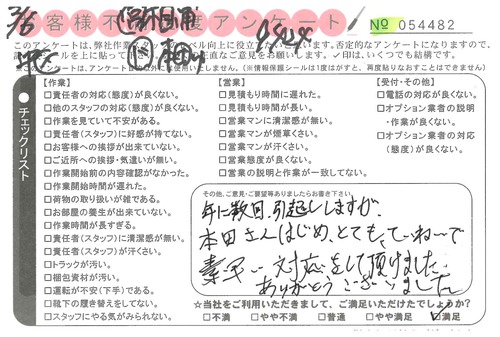 お客様不満足度アンケート
№ 054482
このアンケートは、弊社作業スタッフのレベル向上に役立て
【作業】
□責任者の対応(態度)が良くない。
□他のスタッフの対応(態度)が良くない。
□作業を見ていて不安がある。
□責任者(スタッフ)に好感が持てない。
□お客様への挨拶が出来ていない。
□ご近所への挨拶・気遣いが無い。
□作業開始前の内容確認がなかった。
□作業開始時間が遅れた。
□荷物の取り扱いが雑である。
□お部屋の養生が出来ていない。
□作業時間が長すぎる。
□責任者(スタッフ)に清潔感が無い。
□責任者(スタッフ)が汗くさい。
□トラックが汚い。
□梱包資材が汚い。
□運転が不安(下手)である。
□靴下の履き替えをしてない。
□スタッフにやる気がみられない。
【営業】
□見積もり時間に遅れた。
□見積もり時間が長い。
□営業マンに清潔感が無い。
□営業マンが煙草くさい。
□営業マンが汗くさい。
□営業態度が良くない。
□営業の説明と作業が一致してない。
【受付・その他】
□電話の対応が良くない。
□オプション業者の説明
・作業が良くない。
□オプション業者の対応
(態度)が良くない。
チェックリスト
その他、ご意見・ご要望等ありましたらお書き下さい
年に数回、引越ししますが、
本田さんはじめ、とても、てーねーで
素早い対応をして頂けました
ありがとうございました
☆当社をご利用いただきまして、ご満足いただけたでしょうか?
□不満 □やや不満 □普通 □やや満足 ☑満足